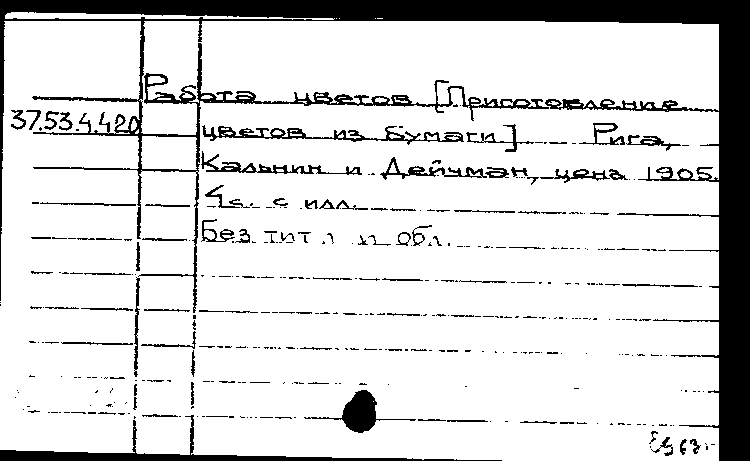 Работа цветов [Приготовление
37.53.4.420 цветов из бумаги] Рига,
Кальнин и Дейчман, цена 1905.
4с. с илл.
Без тит л и обл.